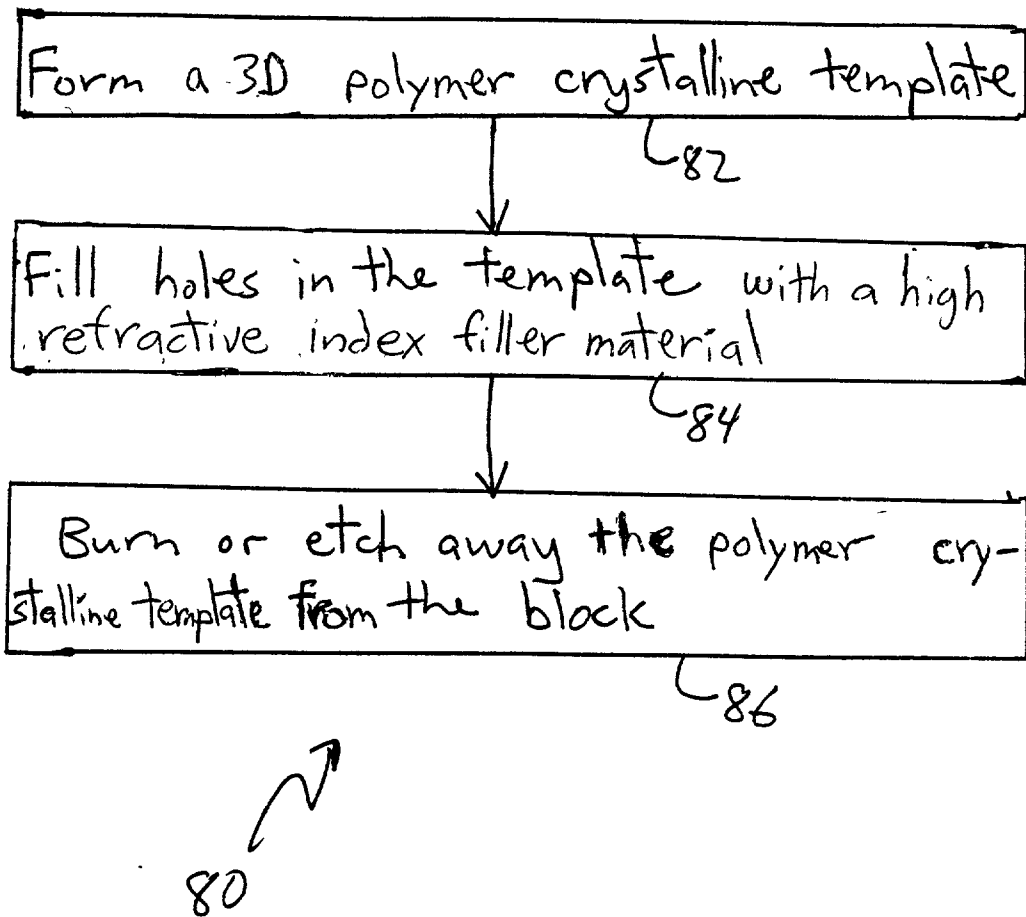 Form a 3D polymer crystalline template
82
Fill holes in the template with a high
refractive index filler material
84
Burn or etch away the polymer cry-
stalline template from the block
86
80